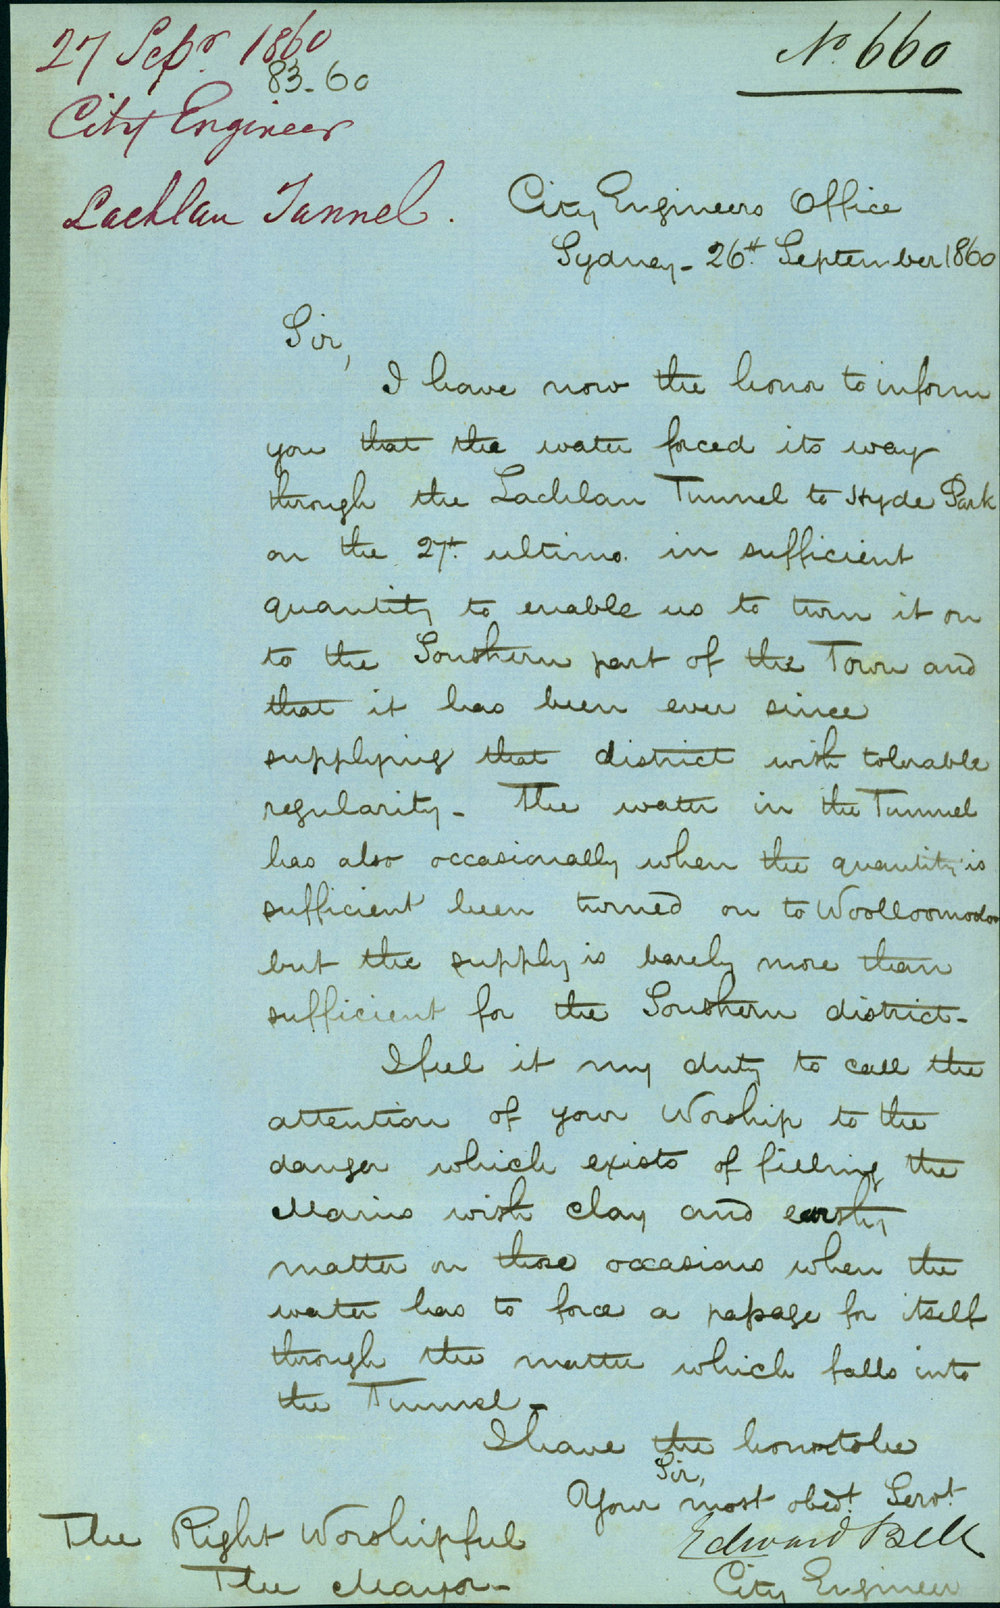 27 Sepr. 1860
83-60
No 660
City Engineer
Lachlan Tunnel.
City Engineers Office
Sydney - 26th September 1860
Sir,
I have now the honor to inform
you that the water forced its way
through the Lachlan Tunnel to Hyde Park
on the 27th. ultimo. in sufficient
quantity to enable us to turn it on
to the Southern part of the Town and
that it has been ever since
supplying that district with tolerable
regularity - The water in the Tunnel
has also occasionally when the quantity is
sufficient been turned on to Woolloomooloo
but the supply is barely more than
sufficient for the Southern district -
I feel it my duty to call the
attention of your Worship to the
danger which exists of filling the
Mains with clay and earthy
matter on those occasions when the
water has to force a passage for itself
through the matter which falls into
the Tunnel -
I have the honor to be
Sir,
Your most obedt. Servt.
Edward Bell
City Engineer
The Right Worshipful
The Mayor -